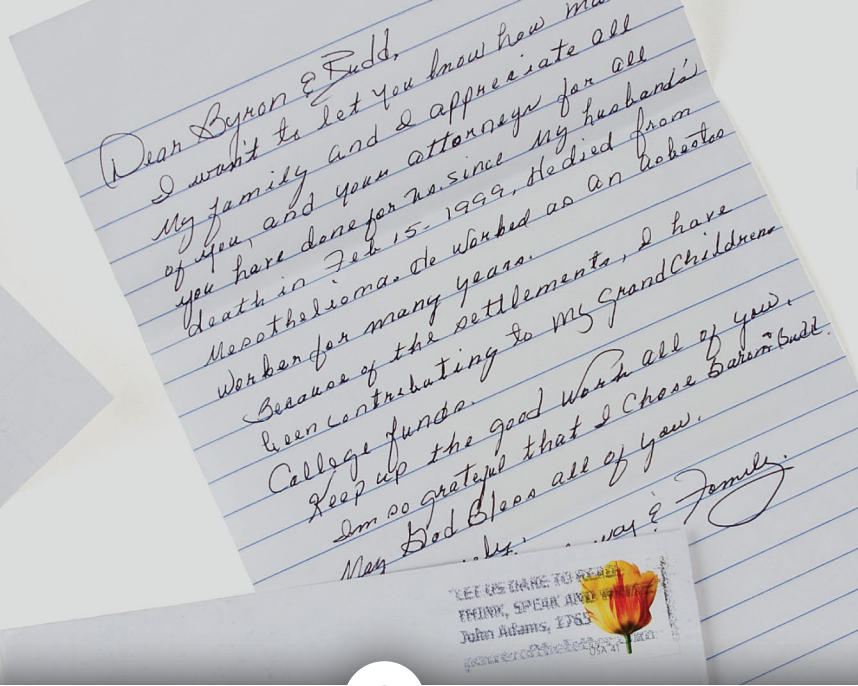 Dear Byron & Budd,
I wan't to let you know how
My family and I appreciate all
of you, and your attorneys for all
you have done for us. since My husband's
death in Feb 15 - 1999, He died from
Mesothelioma. He worked as an asbestos
worker for many years.
Because of the settlements, I have
been contributing to my GrandChildrens
College funds.
Keep up the good work all of you.
I'm so grateful that I Chose Baron & Budd.
May God Bless all of you.
& Family.
LET US DARE TO READ,
THINK, SPEAK AND WRITE
John Adams, 1765
USA 41